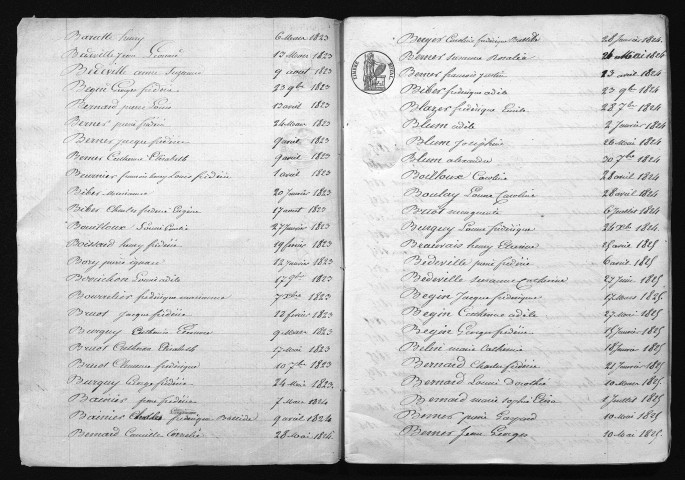 Barelt henry 6 Mars 1823
Bédeville Jean Léonard 13 Mars 1823
Bédeville anne Suzanne 9 aout 1823
Begin George fréderic 23 9bre 1823
Bernard pierre Louis 12 avril 1823
Berner pierre fréderic 24 Mars 1823
Berner Jacque fréderic 9 avril 1823
Berner Catherine Elisabeth 9 avril 1823
Beurnier françois henry Louis fréderic 1 avril 1823
Biber 20 Janvier 1823
Biber Charles fréderic Eugène 17 aout 1823
Bouilloux Louise Emilie 27 Janvier 1823
Boissard henry fréderic 19 fevrier 1823
Bory pierre ignace 12 Janvier 1823
Bornichon Louise adèle 17 9bre 1823
Bourcelier fréderique 7 Xbre 1823
Bruot Jacque fréderic 12 fevrier 1823
Burguy Catherine 9 Mars 1823
Bruot Catherine Elisabeth 17 Mai 1823
Bruot Clémence fréderique 10 7bre 1823
Burguy George fréderic 24 Mai 1823
Bainier pierre fréderic 7 Mars 1824
Bainier Charles fréderique 9 avril 1824
Bernard Camille Cornélie 28 Mai 1824
TIMBRE ROYAL
Beyer Caroline fréderique 28 Janvier 1824
Berner Suzanne Rosalie 26 Mai 1824
Berner françois Justin 23 avril 1824
Biber fréderique adèle 23 9bre 1824
Blazer fréderique Emilie 28 7bre 1824
Blum adèle 2 Janvier 1824
Blum Joséphine 26 Mai 1824
Blum alexandre 30 7bre 1824
Bailloux Caroline 28 avril 1824
Boulay Louise Caroline 28 avril 1824
Bruot marguerite 6 Juillet 1824
Burguy Louise fréderique 24 Xbre 1824
Beauvais henry Etienne 15 avril 1825
Bédeville pierre fréderic 6 avril 1825
Bedeville Suzanne Catherine 27 Juin 1825
Begin Jacque fréderique 17 Mars 1825
Begin Catherine adèle 27 Mars 1825
Begin George fréderic 15 Janvier 1825
Belin marie Catherine 18 fevrier 1825
Bernard Charles fréderic 21 Janvier 1825
Bernard Louise Dorothée 10 Mars 1825
Bernard marie Sophie Elisa 1 Juillet 1825
Berner pierre Gaspard 10 Mai 1825
Berner Jean George 10 Mai 1825